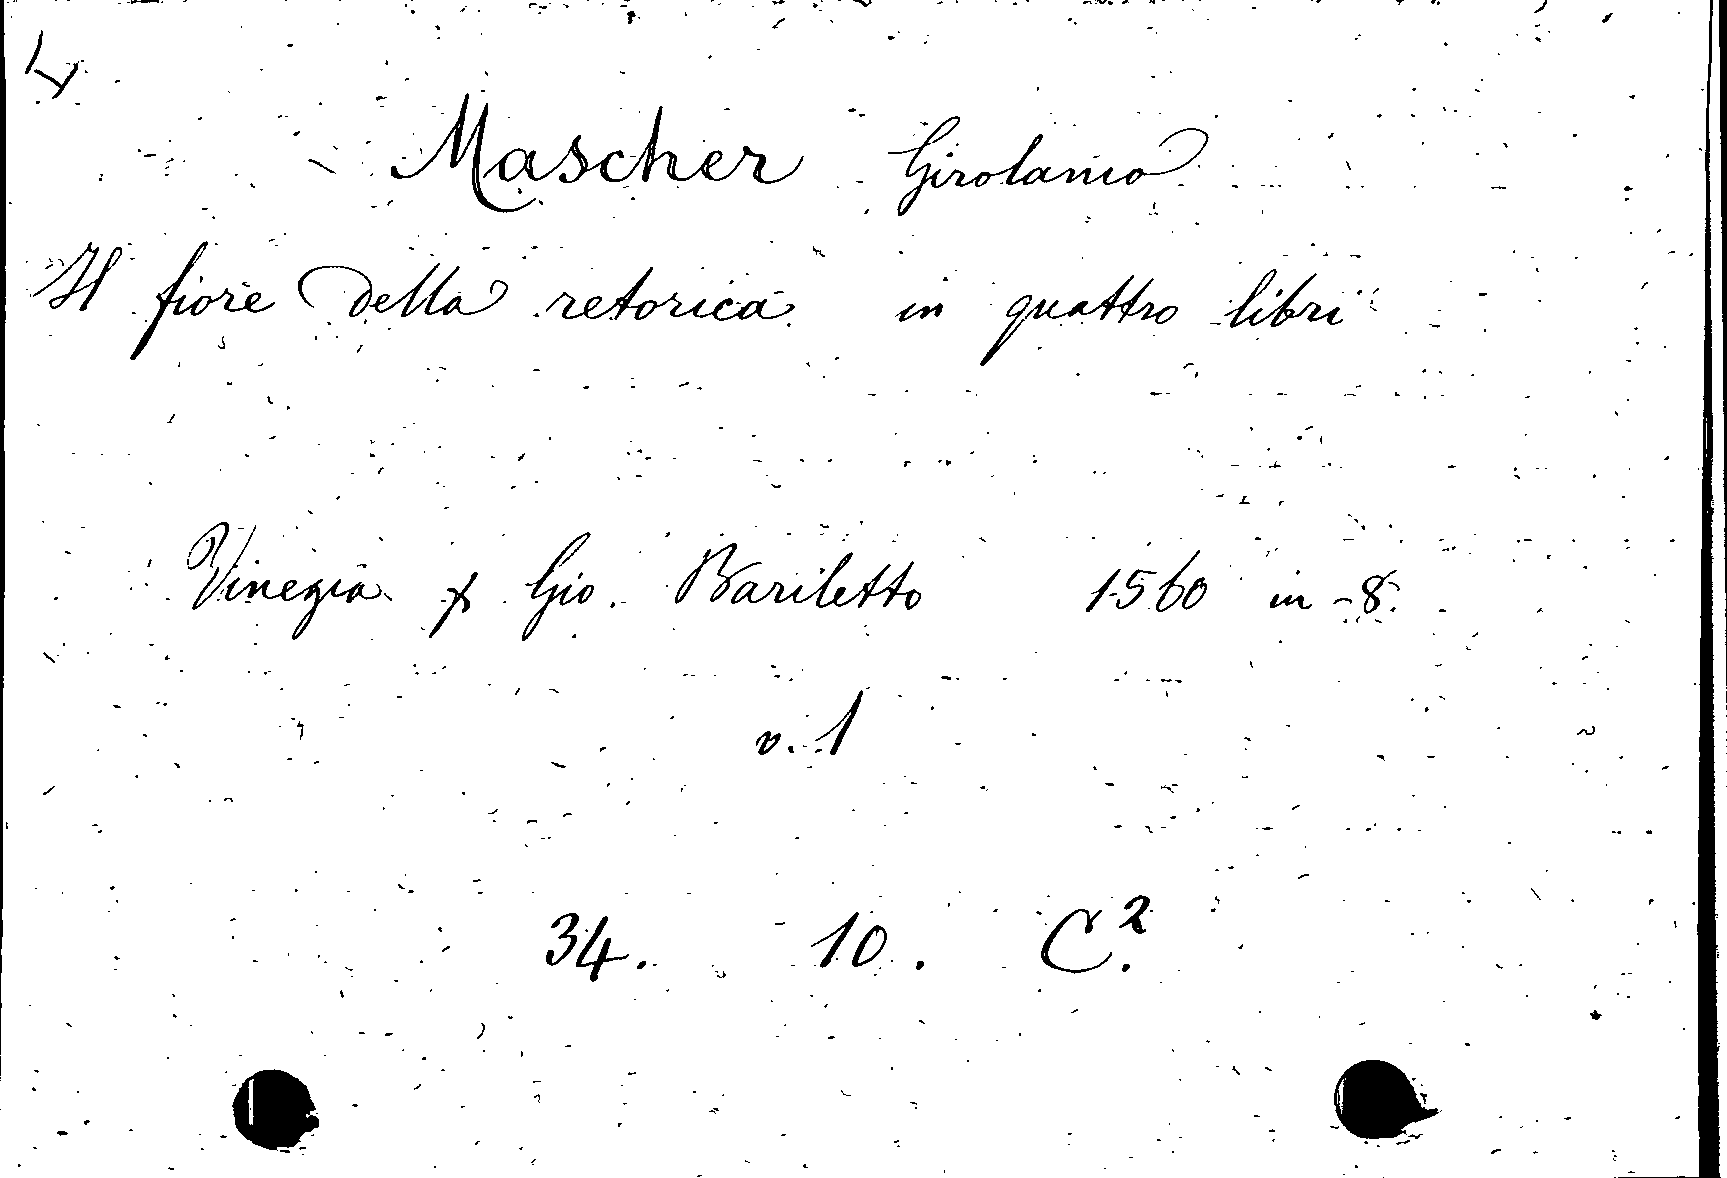 Mascher Girolamo
Il fiore della retorica in quattro libri
Vinegia p Gio. Bariletto 1560 in-8.
v. 1
34. 10. C.²